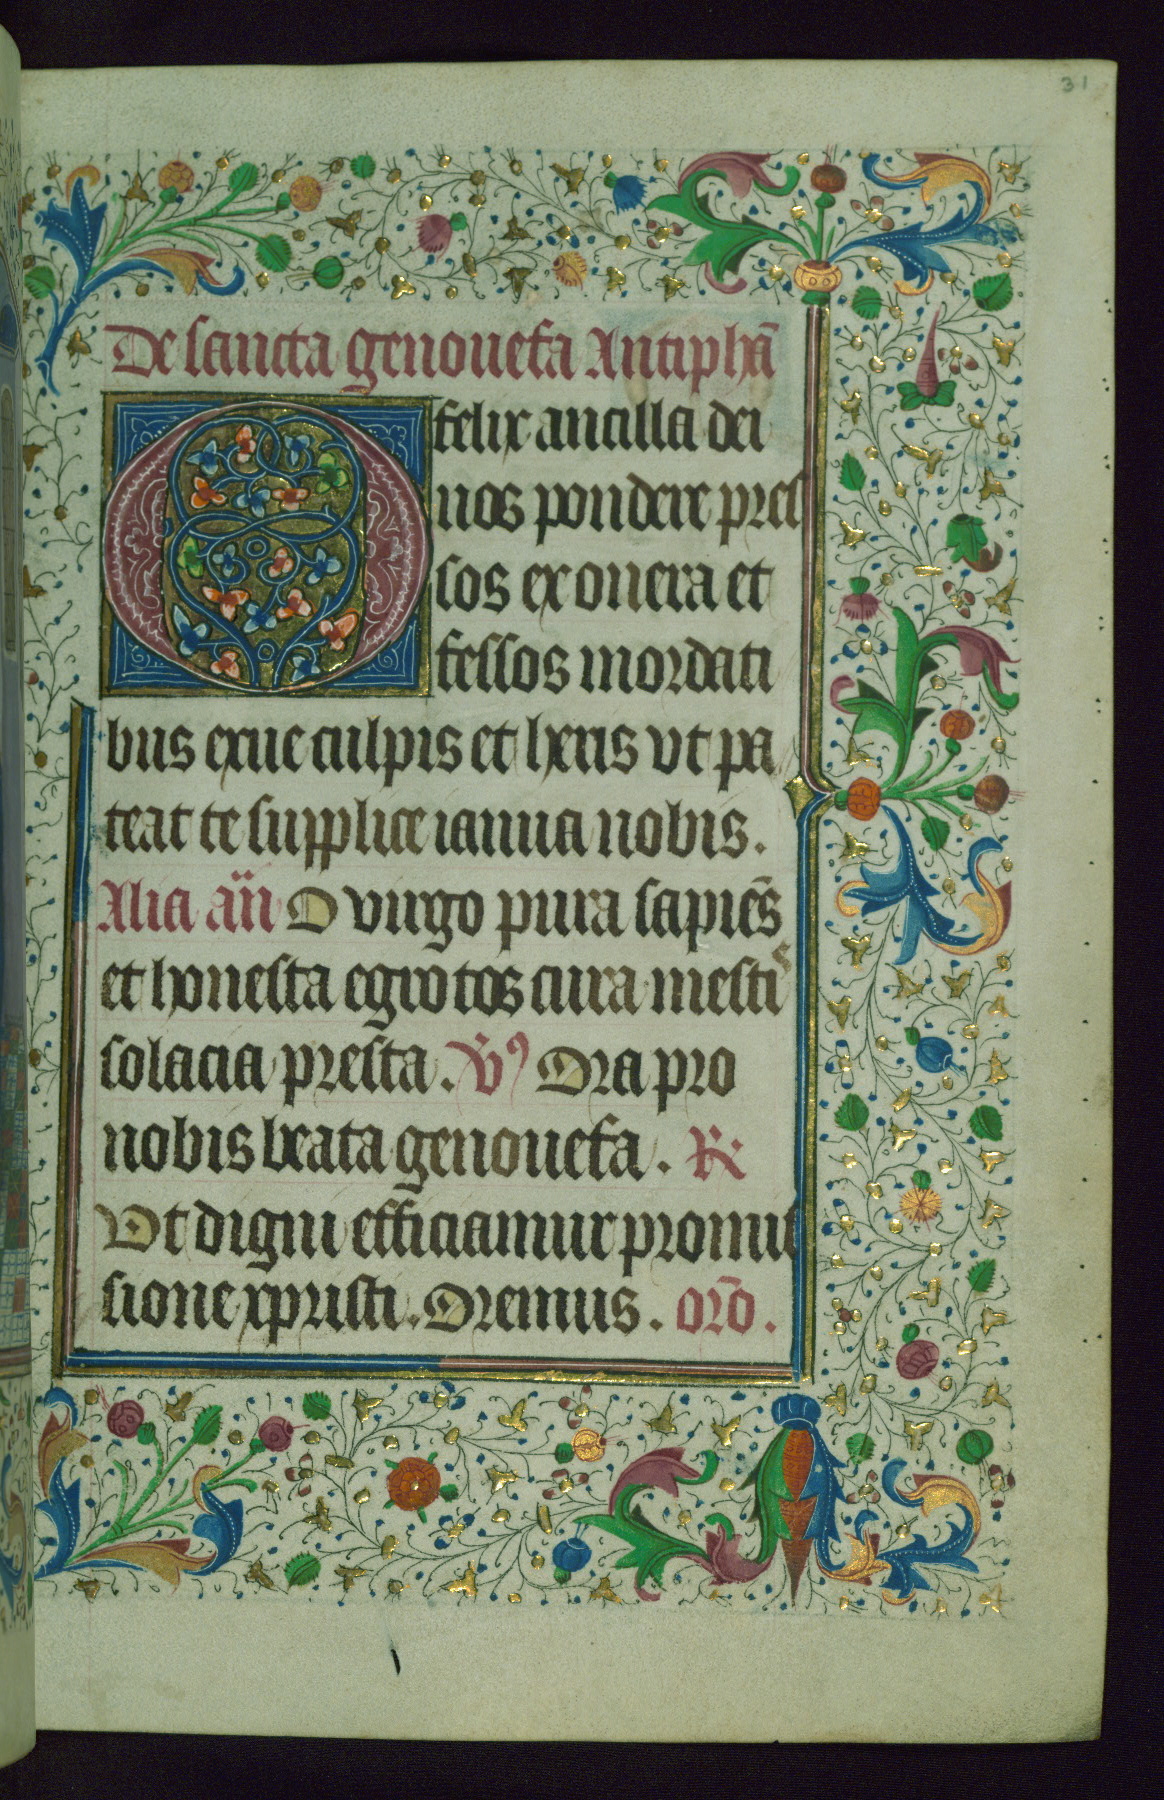 31
De sancta genouefa Antiphā
O felix ancilla dei
nos pondere pres
sos exonera et
fessos mordati
bus exue culpis et heris vt pa
teat te supplice ianua nobis.
Alia añ O virgo pura sapiēs
et honesta egrotos cura mestis
solacia presta. V̄ꝰ Ora pro
nobis beata genouefa. R
Vt digni efficiamur promis
sione xpristi. Oremus. orō.